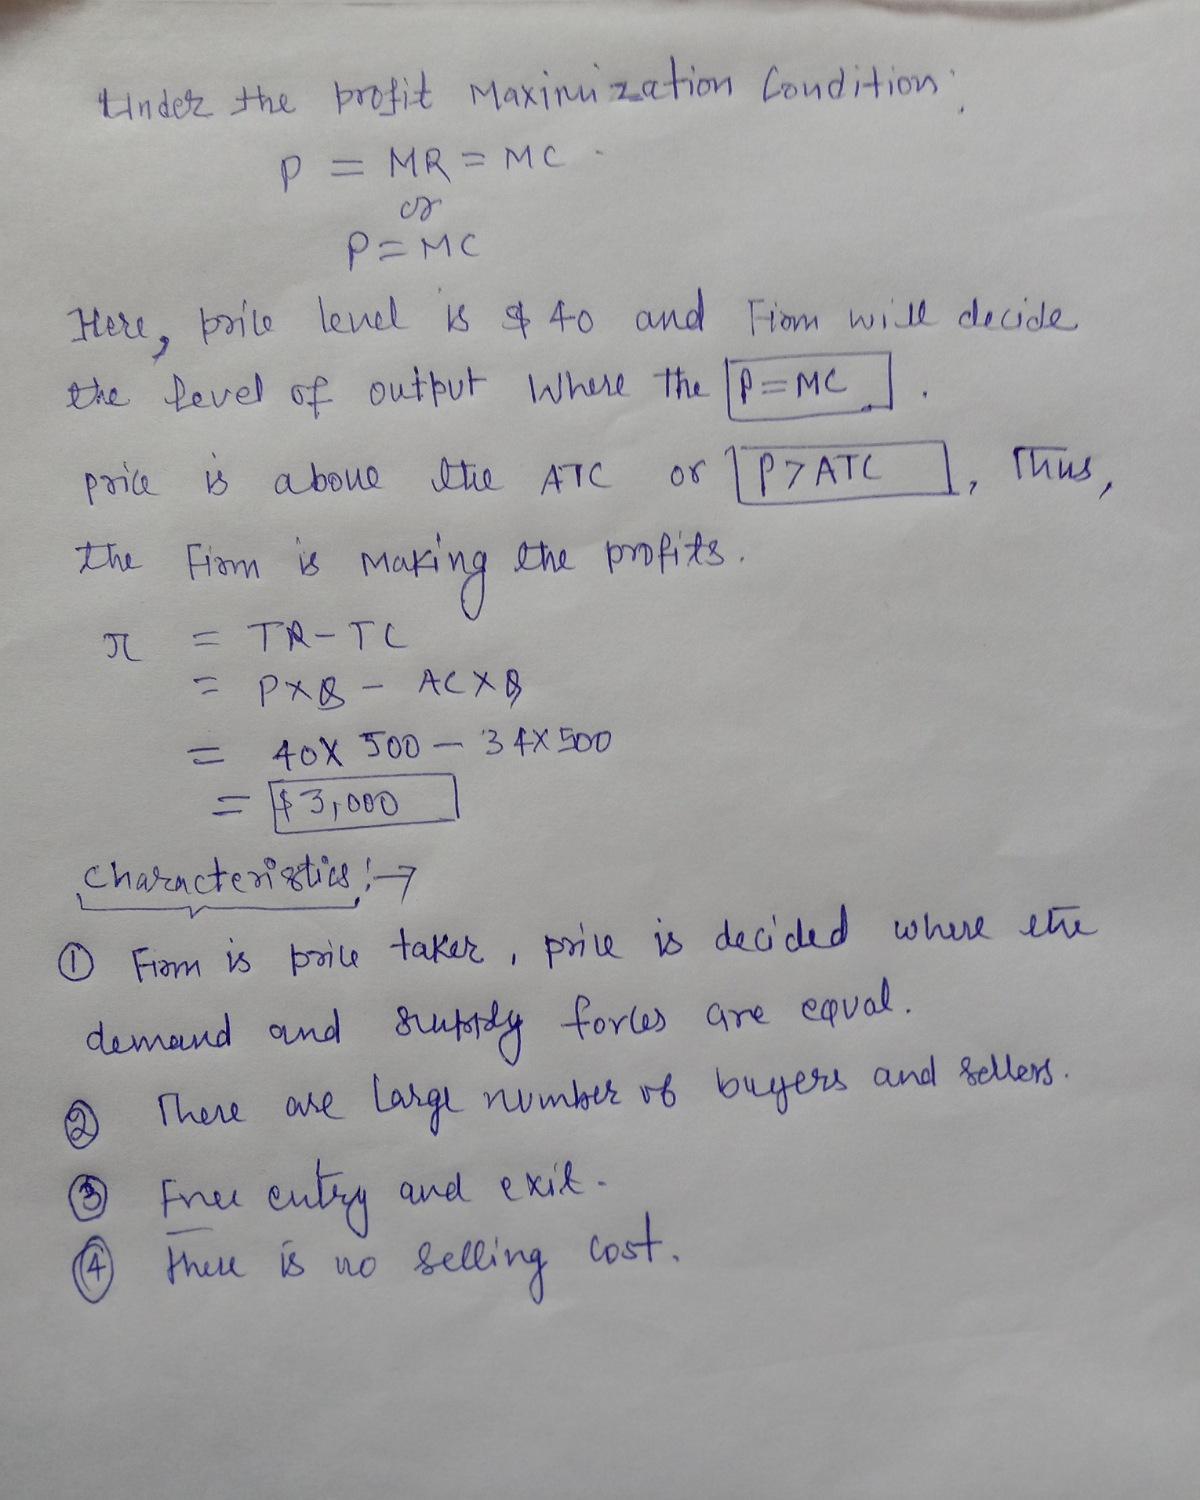 Under the profit Maximization Condition:
P = MR = MC
or
P = MC
Here, price level is $ 40 and Firm will decide
the level of output Where the P = MC .
price is above the ATC or P > ATC , Thus,
the Firm is Making the profits.
π = TR - TC
= P × Q - AC × Q
= 40 × 500 - 34 × 500
= $3,000
Characteristics :→
① Firm is price taker, price is decided where the
demand and supply forces are equal.
② There are Large number of buyers and sellers.
③ Free entry and exit.
④ There is no selling cost.